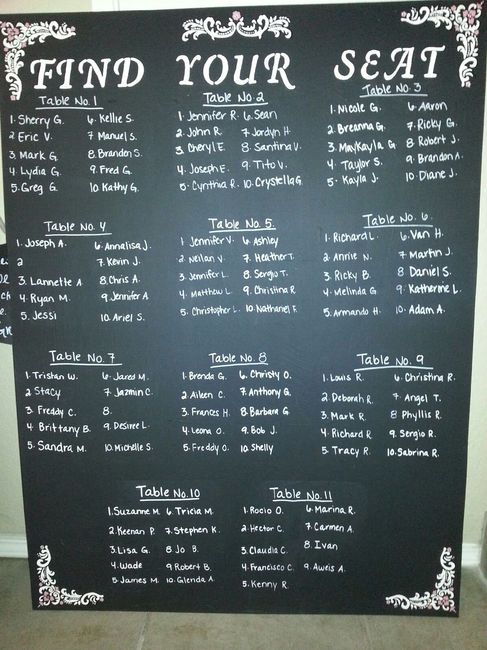 FIND YOUR SEAT
Table No. 1
1. Sherry G. 6. Kellie S.
2 Eric V. 7 Manuel S.
3. Mark G. 8. Brandon S.
4. Lydia G. 9. Fred G.
5. Greg G. 10. Kathy G.
Table No. 2
1. Jennifer R. 6. Sean
2. John R. 7. Jordyn H.
3. Cheryl E. 8. Santina V.
4. Joseph E. 9. Tito V.
5. Cynthia R. 10. Crystella G.
Table No. 3
1. Nicole G. 6. Aaron
2. Breanna G. 7. Ricky G.
3. Maykayla G. 8. Robert J.
4. Taylor S. 9. Brandon A.
5. Kayla J. 10. Diane J.
Table No. 4
1. Joseph A. 6. Annalisa J.
2 7. Kevin J.
3. Lannette A. 8. Chris A.
4. Ryan M. 9. Jennifer A.
5. Jessi 10. Ariel S.
Table No. 5.
1 Jennifer V. 6. Ashley
2. Neilan V. 7. Heather T.
3. Jennifer L. 8. Sergio T.
4. Matthew L. 9. Christina R.
5. Christopher L. 10. Nathaniel F.
Table No. 6.
1. Richard L. 6. Van H.
2. Annie N. 7. Martin J.
3. Ricky B. 8 Daniel S.
4. Melinda G. 9. Katherine L.
5. Armando H. 10. Adam A.
Table No. 7
1. Tristan W. 6. Jared M.
2 Stacy 7. Jazmin C.
3. Freddy C. 8.
4. Brittany B. 9. Desiree L.
5. Sandra M. 10. Michelle S.
Table No. 8
1. Brenda G. 6. Christy O.
2. Aileen C. 7. Anthony G.
3. Frances H. 8 Barbara G.
4. Leona O. 9. Bob J.
5. Freddy O. 10. Shelly
Table No. 9
1. Louis R. 6. Christina R.
2. Deborah R. 7. Angel T.
3. Mark R. 8 Phyllis R.
4. Richard R. 9. Sergio R.
5. Tracy R. 10. Sabrina R.
Table No. 10
1. Suzanne M. 6. Tricia M.
2. Keenan P. 7. Stephen K.
3. Lisa G. 8 Jo B.
4. Wade 9. Robert B.
5. James M. 10. Glenda A.
Table No. 11
1. Rocio O. 6. Marina R.
2. Hector C. 7. Carmen A.
3. Claudia C. 8. Ivan
4. Francisco C. 9. Aweis A.
5. Kenny R.